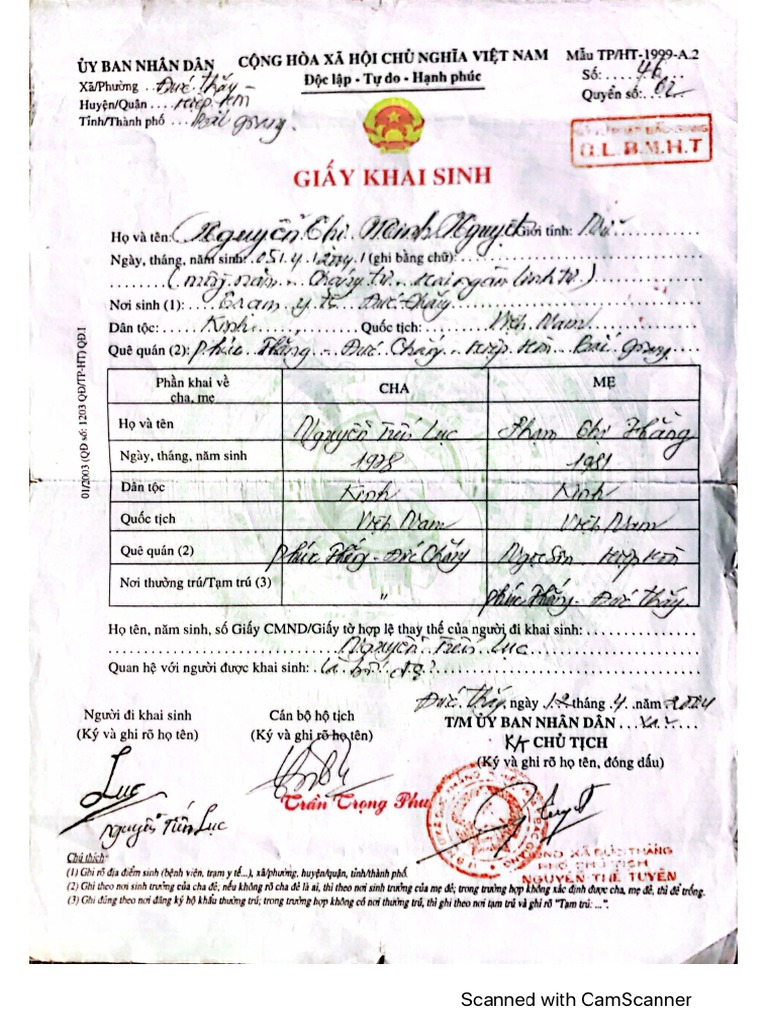 ỦY BAN NHÂN DÂN
CỘNG HÒA XÃ HỘI CHỦ NGHĨA VIỆT NAM
Mẫu TP/HT-1999-A.2
Xã/Phường Đức Thắng
Độc lập - Tự do - Hạnh phúc
Số: 46
Huyện/Quận Hiệp Hòa
Quyển số: 02
Tỉnh/Thành phố Bắc Giang.
Q.L.B.M.H.T
GIẤY KHAI SINH
Họ và tên: Nguyễn Thị Minh Nguyệt Giới tính: Nữ
Ngày, tháng, năm sinh: 05/4/2004 (ghi bằng chữ):
(mồng năm - tháng tư - hai ngàn linh tư)
Nơi sinh (1): Trạm y tế Đức Thắng
Dân tộc: Kinh Quốc tịch: Việt Nam
Quê quán (2): Phúc Thắng - Đức Thắng - Hiệp Hòa Bắc Giang
Phần khai về cha, mẹ
CHA
MẸ
Họ và tên
Nguyễn Tiến Lục
Phạm Thị Hằng
Ngày, tháng, năm sinh
1978
1981
Dân tộc
Kinh
Kinh
Quốc tịch
Việt Nam
Việt Nam
Quê quán (2)
Phúc Thắng - Đức Thắng
Ngọc Sơn - Hiệp Hòa
Nơi thường trú/Tạm trú (3)
"
Phúc Thắng - Đức Thắng
Họ tên, năm sinh, số Giấy CMND/Giấy tờ hợp lệ thay thế của người đi khai sinh:
Nguyễn Tiến Lục
Quan hệ với người được khai sinh: là bố đẻ
Đức Thắng, ngày 12 tháng 4 năm 2004
Người đi khai sinh
Cán bộ hộ tịch
T/M ỦY BAN NHÂN DÂN xã
(Ký và ghi rõ họ tên)
(Ký và ghi rõ họ tên)
K/T CHỦ TỊCH
(Ký và ghi rõ họ tên, đóng dấu)
Lục
Trần Trọng Phu
Nguyễn Tiến Lục
PHÓ CHỦ TỊCH
NGUYỄN THẾ TUYÊN
Chú thích:
(1) Ghi rõ địa điểm sinh (bệnh viện, trạm y tế...), xã/phường, huyện/quận, tỉnh/thành phố.
(2) Ghi theo nơi sinh trưởng của cha đẻ; nếu không rõ cha đẻ là ai, thì theo nơi sinh trưởng của mẹ đẻ; trong trường hợp không xác định được cha, mẹ đẻ, thì để trống.
(3) Ghi đúng theo nơi đăng ký hộ khẩu thường trú; trong trường hợp không có nơi thường trú, thì ghi theo nơi tạm trú và ghi rõ "Tạm trú: ...".
01/2003 (QĐ số: 1203 QĐ/TP-HT) QĐ.I
Scanned with CamScanner